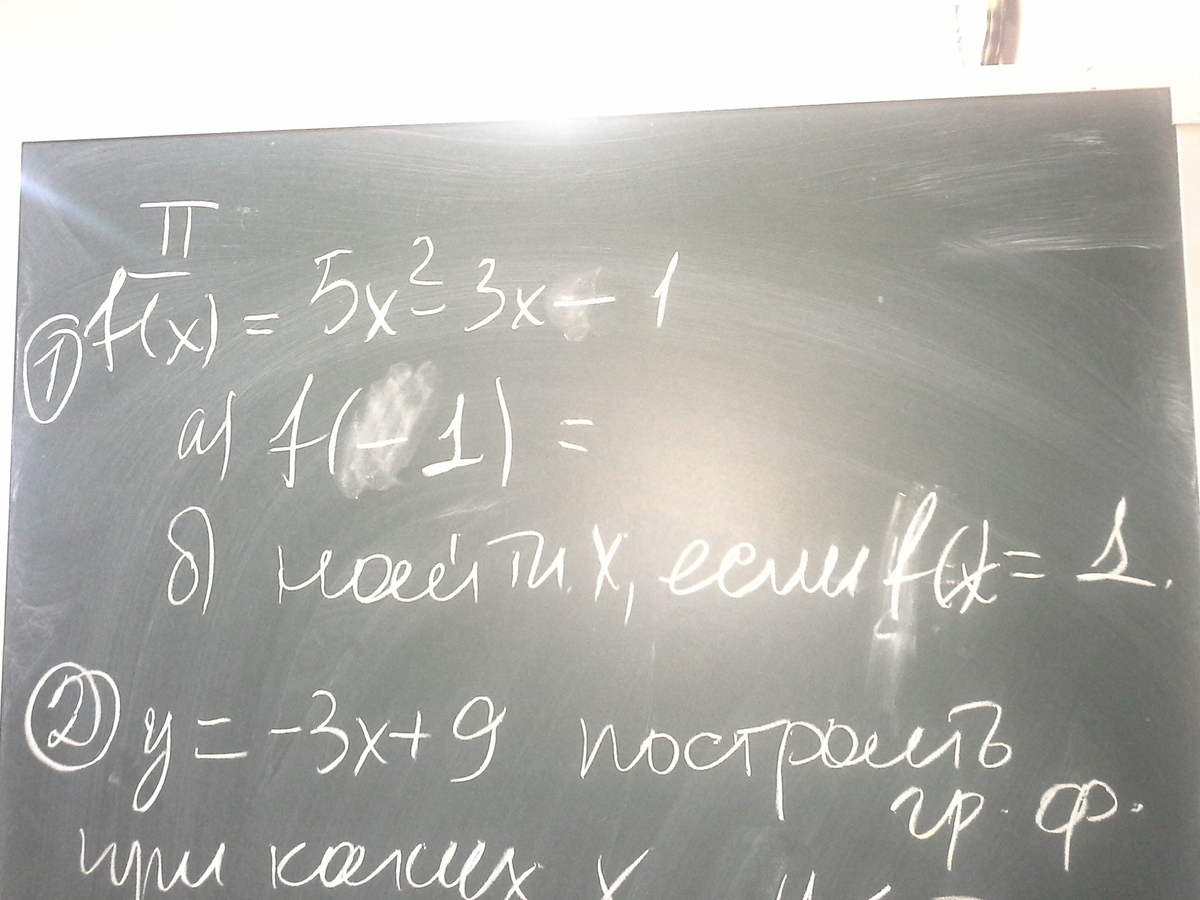 П
① f(x) = 5x² - 3x - 1
а) f(-1) =
б) найти x, если f(x) = 1.
② y = -3x + 9 построить
гр. ф.
при каких x